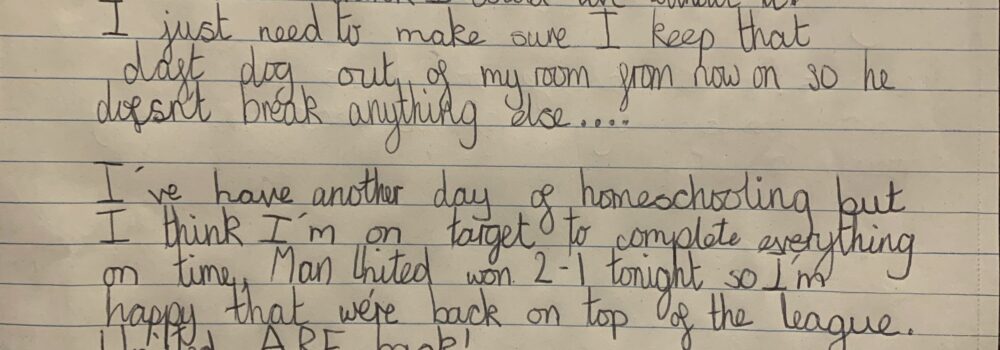 I just need to make sure I keep that
daft dog out of my room from now on so he
doesn't break anything else....
I've have another day of homeschooling but
I think I'm on target to complete everything
on time. Man United won 2-1 tonight so I'm
happy that we're back on top of the league.
United ARE back!